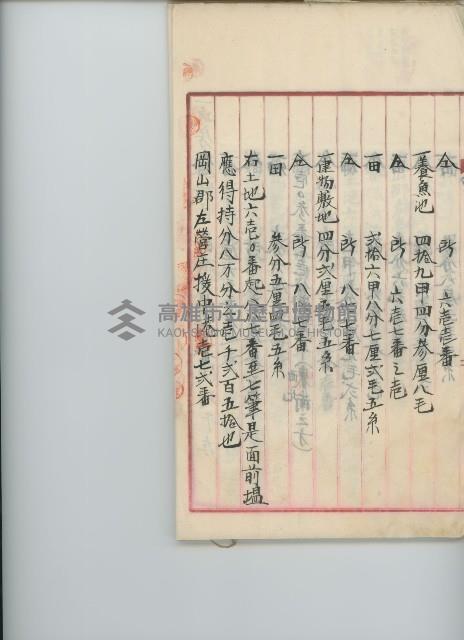 仝　所　六壱壱番
一養魚池　四拾九甲四分参厘八毛
仝　所　六壱七番之壱
一田　弐拾六甲八分七厘弐毛五糸
仝　所　八一七番
一建物敷地　四分弐厘五毛五糸
仝　所　八一七番
一田　参分五厘四毛五糸
右土地六壱〇番起 番至七筆是面前塭
應得持分八万分 壱千弐百五拾也
岡山郡左營庄援中 壱七弐番
高雄市立歷史博物館
KAOHSIUNG MUSEUM OF HISTORY